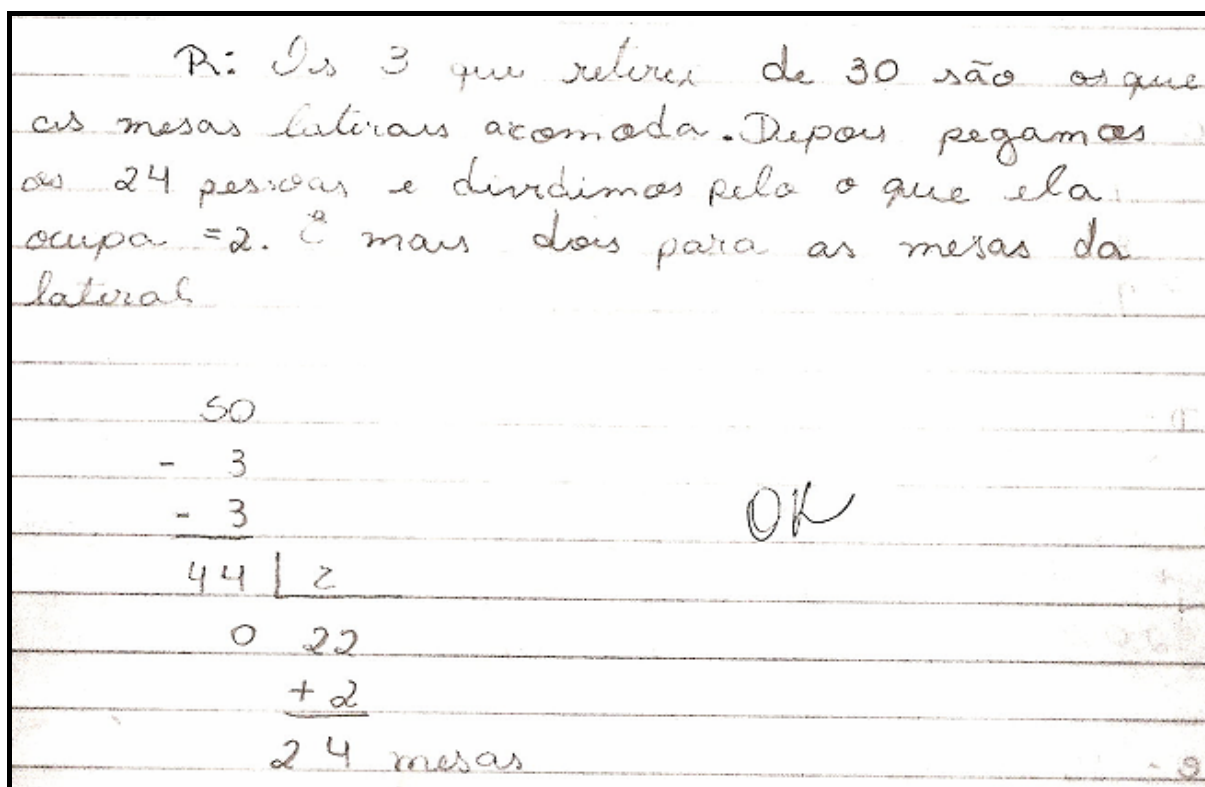 R: Os 3 que retirei de 30 são os que
as mesas laterais acomoda. Depois pegamos
as 24 pessoas e dividimos pelo o que ela
ocupa =2. E mais dois para as mesas da
lateral
50
- 3
- 3
OK
44 | 2
0 22
+ 2
24 mesas